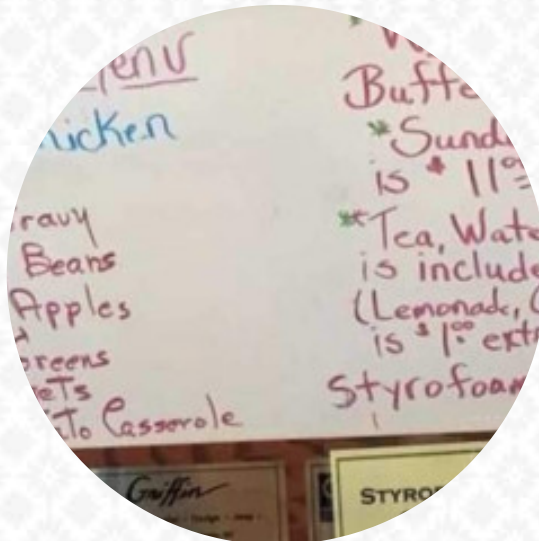 Menu
Chicken
Gravy
Beans
Apples
Greens
Casserole
Buffe
*Sund
is $11
*Tea, Wate
is include
(Lemonade,
is $1.00 ext
Styrofoam
Griffin
STYRO